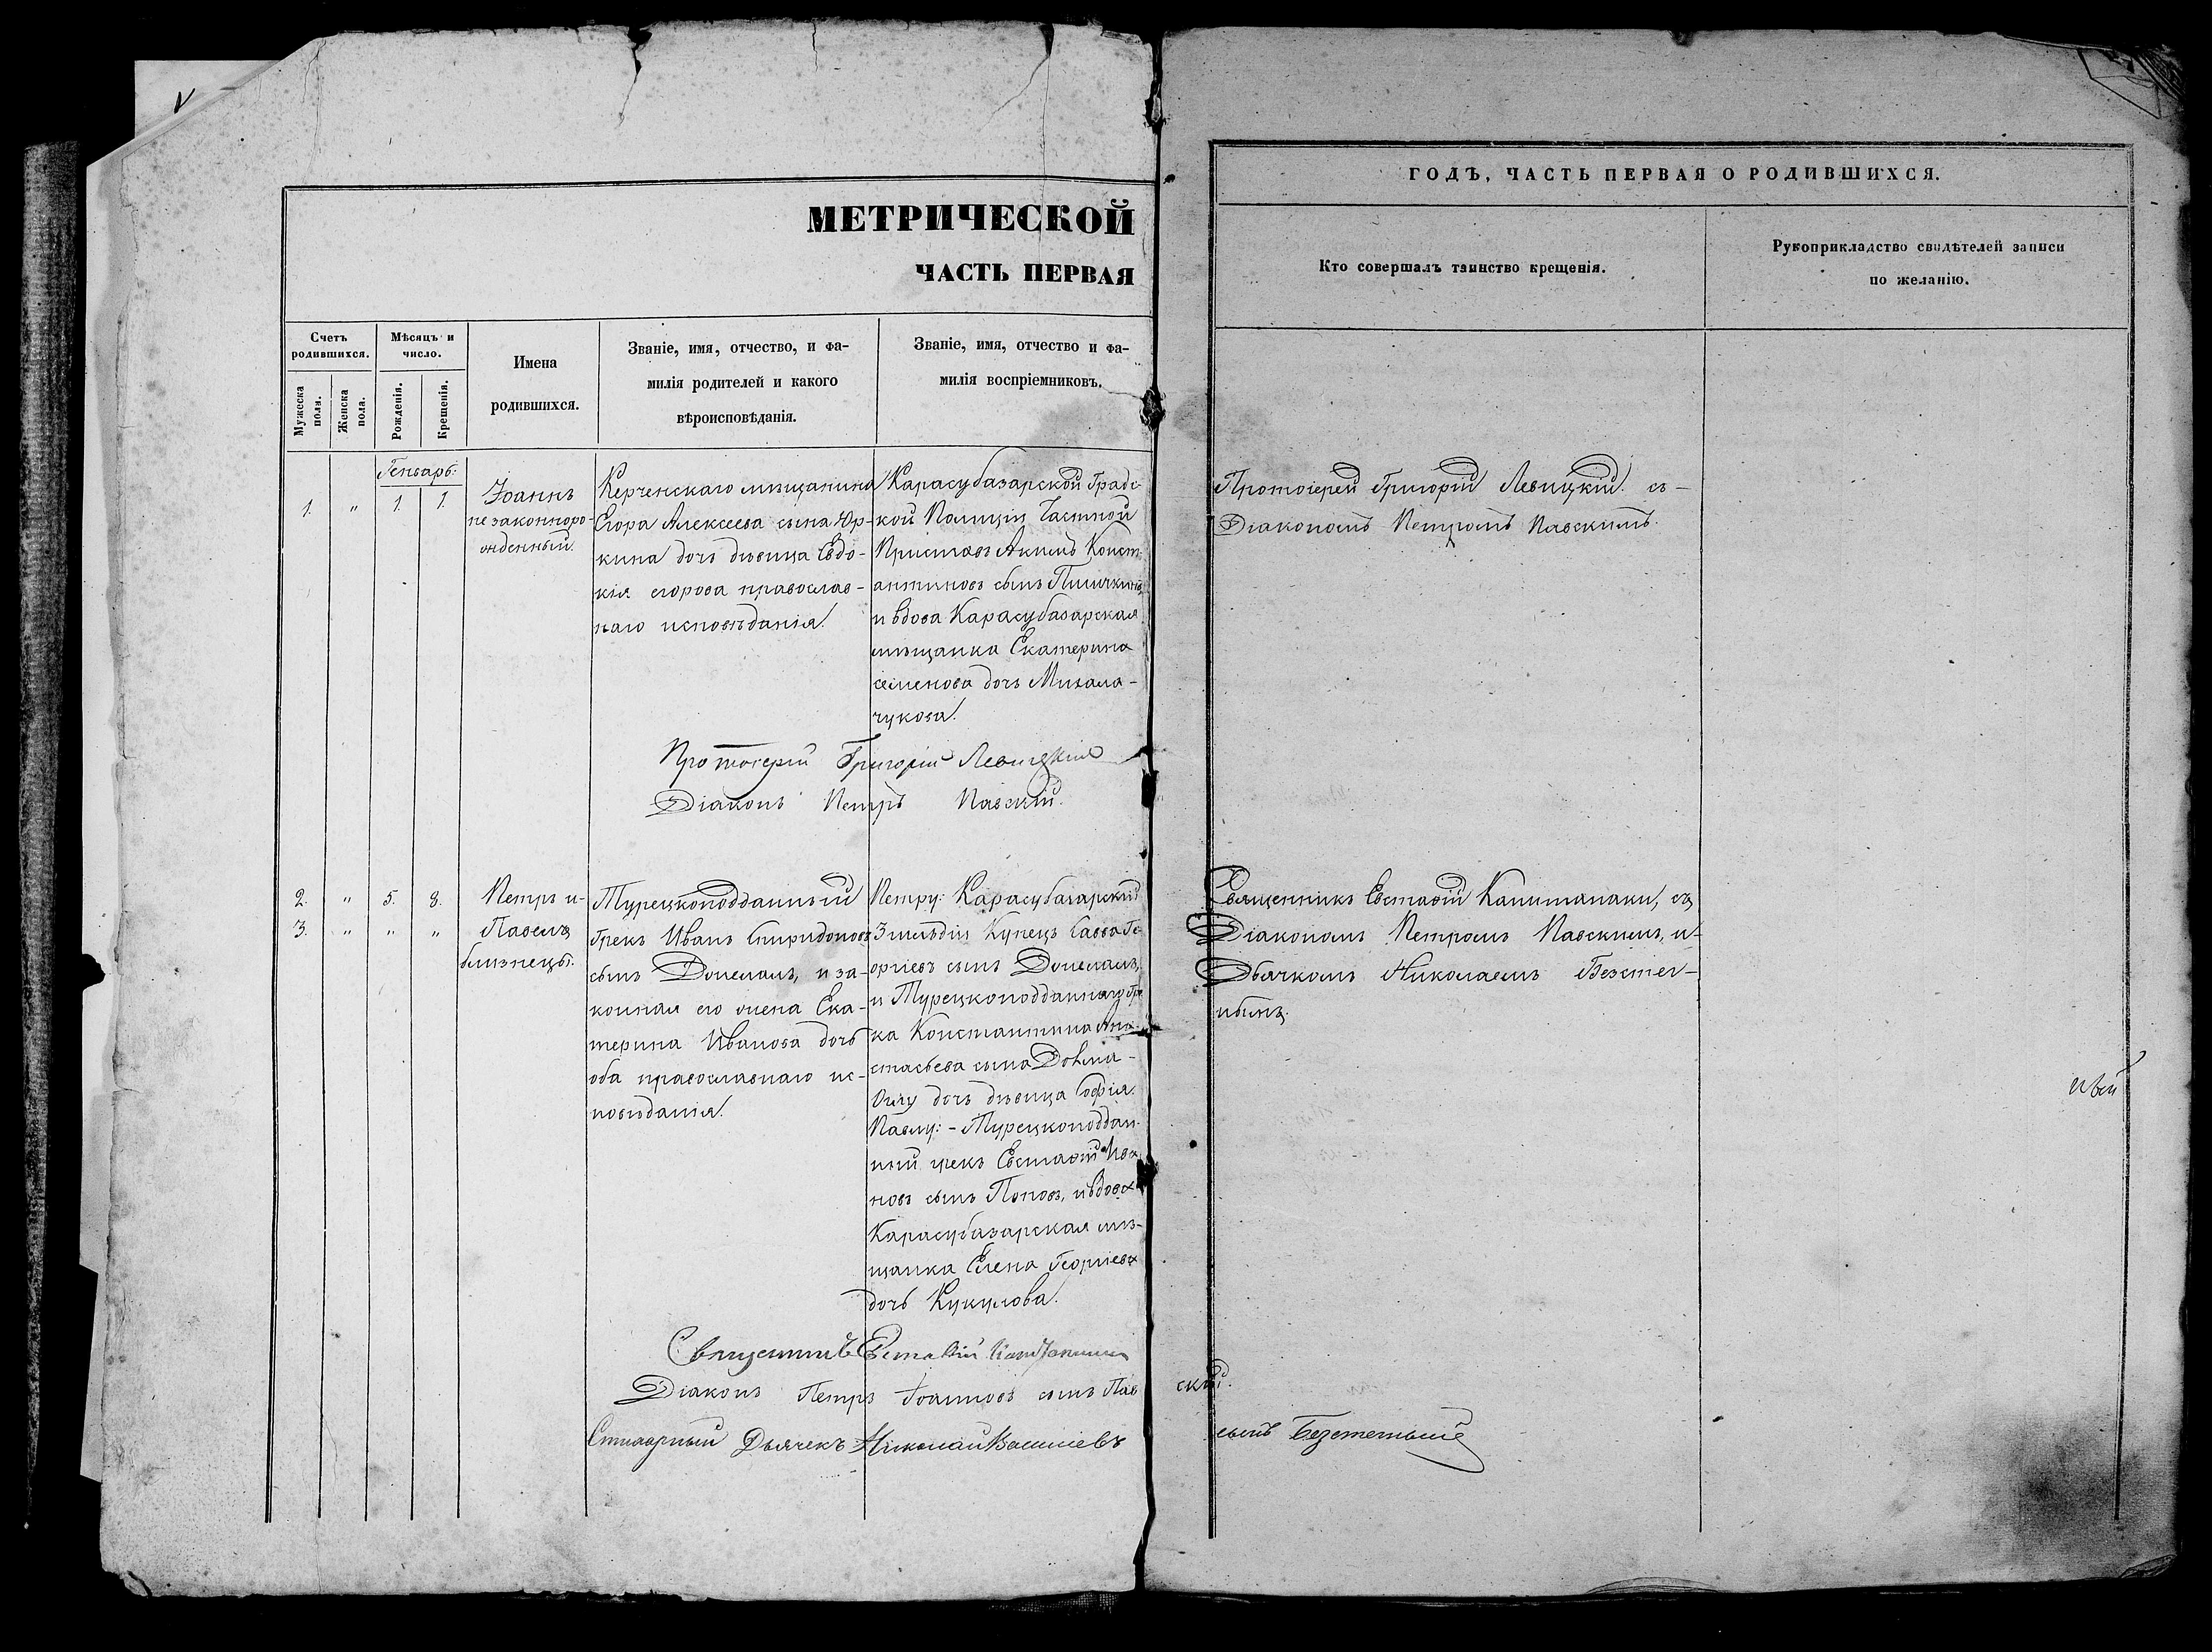 МЕТРИЧЕСКОЙ
ЧАСТЬ ПЕРВАЯ
Счетъ
родившихся.
Мужеска
пола.
Женска
пола.
Мѣсяцъ и
число.
Рожденія.
Крещенія.
Имена
родившихся.
Званіе, имя, отчество, и фа-
милія родителей и какого
вѣроисповѣданія.
Званіе, имя, отчество и фа-
милія воспріемниковъ.
Генварь.
1. " 1. 1.
Іоаннъ
незаконноро-
жденный.
Керченскаго мѣщанина
Егора Алексеева сына Юр-
кина дочь дѣвица Евдо-
кія егорова православ-
наго исповѣданія.
Карасубазарской Градс-
кой Полиціи Частной
Приставъ Акимъ Конст-
антиновъ сынъ
и вдова Карасубазарская
мѣщанка Екатерина
семенова дочь Михала-
чукова.
Протоіерей Григорій Левицкій
Діаконъ Петръ Павскій.
2. " 5. 8.
3. " " "
Петръ и-
Павелъ
близнецы.
Турецкоподданный
Грекъ Иванъ Спиридоновъ
сынъ и за-
конная его жена Ека-
терина Иванова дочь
оба православнаго ис-
повѣданія.
Петру: Карасубазарскій
3 гильдіи Купецъ Савва Ге-
оргіевъ сынъ
и Турецкоподданнаго Гре
ка Константина Ана-
стасьева сына
дочь дѣвица Софія.
Павлу: - Турецкоподдан-
ный грекъ Евстафій Ива
новъ сынъ Поповъ, и вдова
Карасубазарская мѣ-
щанка Елена Георгіева
дочь Кукулова.
Священникъ Евстафій Капитанаки
Діаконъ Петръ Іоанновъ сынъ Пав
скій.
Стихарный Дьячекъ Николай Василіевъ
сынъ
ГОДЪ, ЧАСТЬ ПЕРВАЯ О РОДИВШИХСЯ.
Кто совершалъ таинство крещенія.
Рукоприкладство свидѣтелей записи
по желанію.
Протоіерей Григорій Левицкій съ-
Діакономъ Петромъ Павскимъ.
Священникъ Евстафій Капитанаки, съ
Діакономъ Петромъ Павскимъ, и-
Дьячкомъ Николаемъ